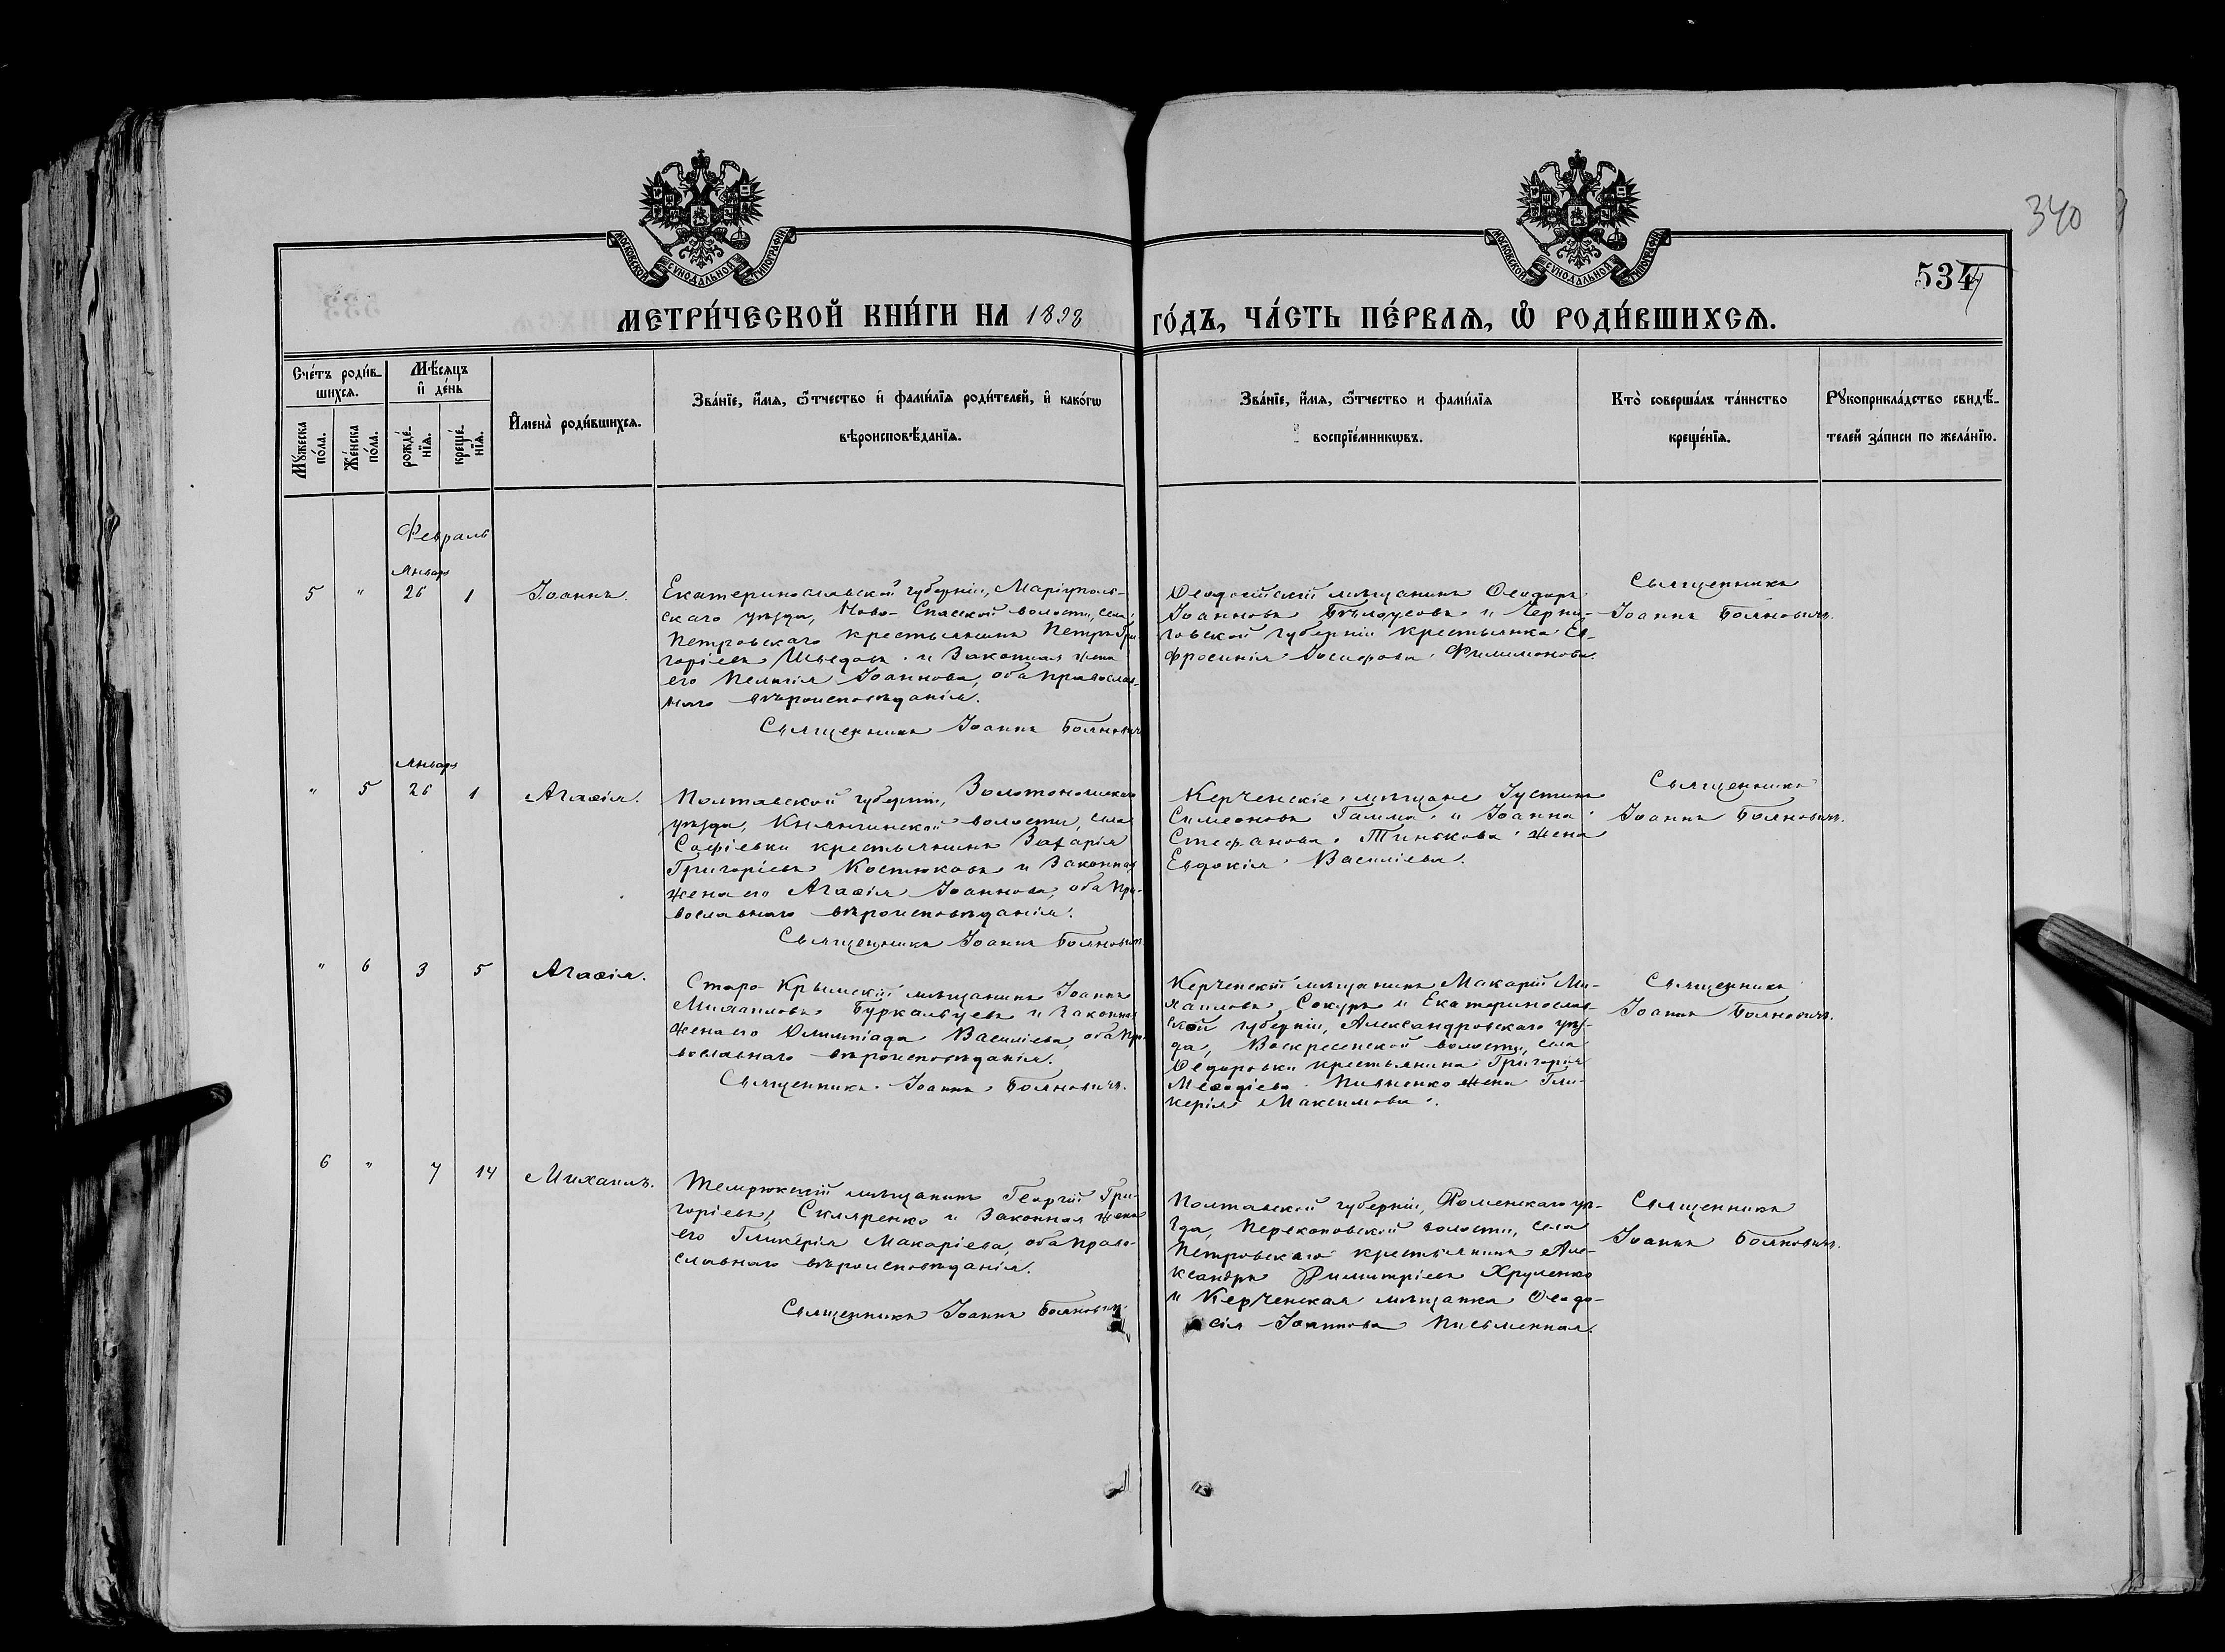 340
МОСКОВСКОЙ СѴНОДАЛЬНОЙ ТИПОГРАФІИ
МОСКОВСКОЙ СѴНОДАЛЬНОЙ ТИПОГРАФІИ
534
МЕТРИ́ЧЕСКОЙ КНИ́ГИ НА 1898 ГО́ДЪ, ЧА́СТЬ ПЕ́РВАѦ, Ѡ҆ РОДИ́ВШИХСѦ.
Сче́тъ роди́в-
шихсѧ.
Мѣ́сѧцъ
и҆ де́нь
Мꙋ́жеска
по́ла.
Же́нска
по́ла.
рожде́-
нїѧ.
креще́-
нїѧ.
И҆мена̀ роди́вшихсѧ.
Зва́нїе, и҆́мѧ, ѻ҆́тчество и҆ фами́лїѧ роди́телей, и҆ како́гѡ
вѣроисповѣ́данїѧ.
Зва́нїе, и҆́мѧ, ѻ҆́тчество и фами́лїѧ
воспрїе́мникѡвъ.
Кто̀ соверша́лъ та́инство
креще́нїѧ.
Рꙋкоприкла́дство свидѣ́-
телей за́писи по жела́нїю.
Февраль
Январь
5 " 26 1 Іоаннъ.
Екатеринославской губерніи, Маріуполь-
скаго уѣзда, Ново-Спасской волости, села
Петровскаго крестьянинъ Петръ Гри-
горіевъ Шведовъ и Законная жена
его Пелагія Іоаннова, оба православ-
наго вѣроисповѣданія.
Священникъ Іоаннъ Бояновичъ
Ѳеодосійскій мѣщанинъ Ѳеодоръ
Іоанновъ Бѣлоусовъ и Черни-
говской губерніи крестьянка Ев-
фросинія Іосифова Филимонова.
Священникъ
Іоаннъ Бояновичъ.
Январь
" 5 26 1 Агаѳія.
Полтавской губерніи, Золотоношскаго
уѣзда, волости, села
Софіевки крестьянинъ Захарія
Григоріевъ Костюковъ и Законная
жена его Агаѳія Іоаннова, оба пра-
вославнаго вѣроисповѣданія.
Священникъ Іоаннъ Бояновичъ
Керченскіе мѣщане Іустинъ
Симеоновъ Гамма и Іоанна
Стефанова Тинькова жена
Евдокія Василіева.
Священникъ
Іоаннъ Бояновичъ.
" 6 3 5 Агаѳія.
Старо-Крымскій мѣщанинъ Іоаннъ
Михаиловъ и Законная
жена его Олимпіада Василіева, оба пра-
вославнаго вѣроисповѣданія.
Священникъ Іоаннъ Бояновичъ.
Керченскій мѣщанинъ Макарій Ми-
хаиловъ Сокуръ и Екатеринослав-
ской губерніи, Александровскаго уѣз-
да, Воскресенской волости, села
Ѳедоровки крестьянина Григорія
Меѳодіева Пивненко жена Гли-
керія Максимова.
Священникъ
Іоаннъ Бояновичъ.
6 " 7 14 Михаилъ.
Темрюкскій мѣщанинъ Георгій Гри-
горіевъ Скляренко и Законная жена
его Гликерія Макаріева, оба право-
славнаго вѣроисповѣданія.
Священникъ Іоаннъ Бояновичъ.
Полтавской губерніи, Роменскаго уѣ-
зда, Перекоповской волости, села
Петровскаго крестьянинъ Але-
ксандръ Димитріевъ Хруленко
и Керченская мѣщанка Ѳеодо-
сія Іоаннова Письменная.
Священникъ
Іоаннъ Бояновичъ.